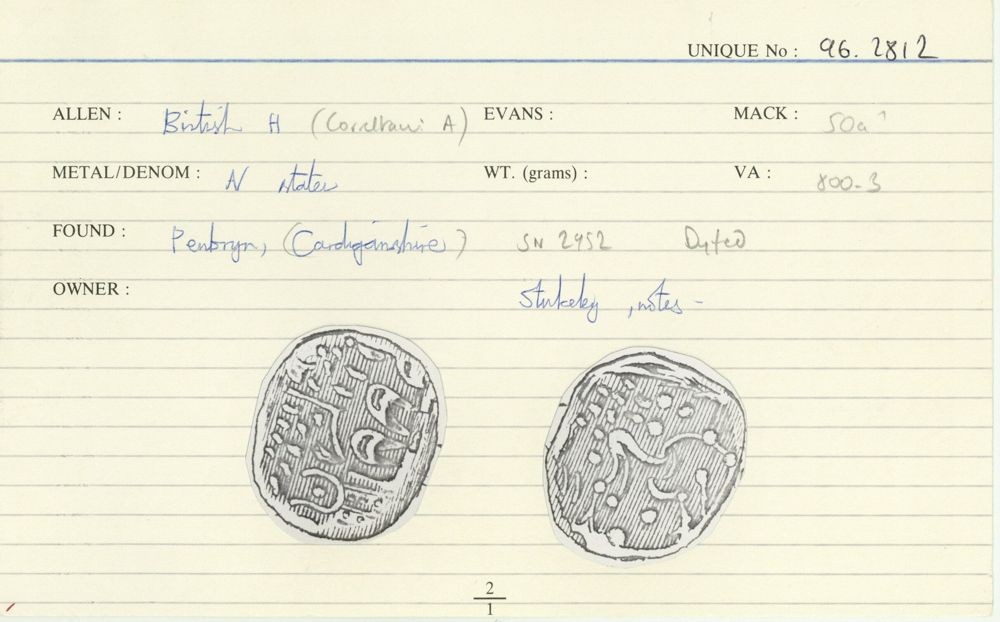 UNIQUE No : 96. 2812
ALLEN : British H (Corieltauvi A) EVANS : MACK : 50a
METAL/DENOM : N stater WT. (grams) : VA : 800-3
FOUND : Penbryn, (Cardiganshire) SN 2952 Dyfed
OWNER :
Stukeley, notes -
2
1